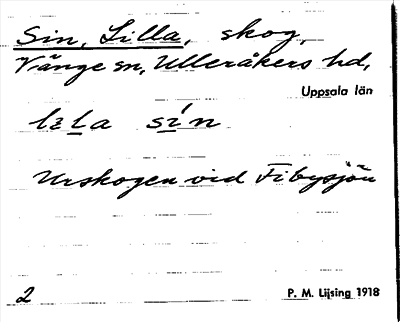 Sin, Lilla, skog,
Vänge sn, Ulleråkers hd,
Uppsala län
lɜla sín
Urskogen vid Fibysjön
2 P. M. Lijsing 1918